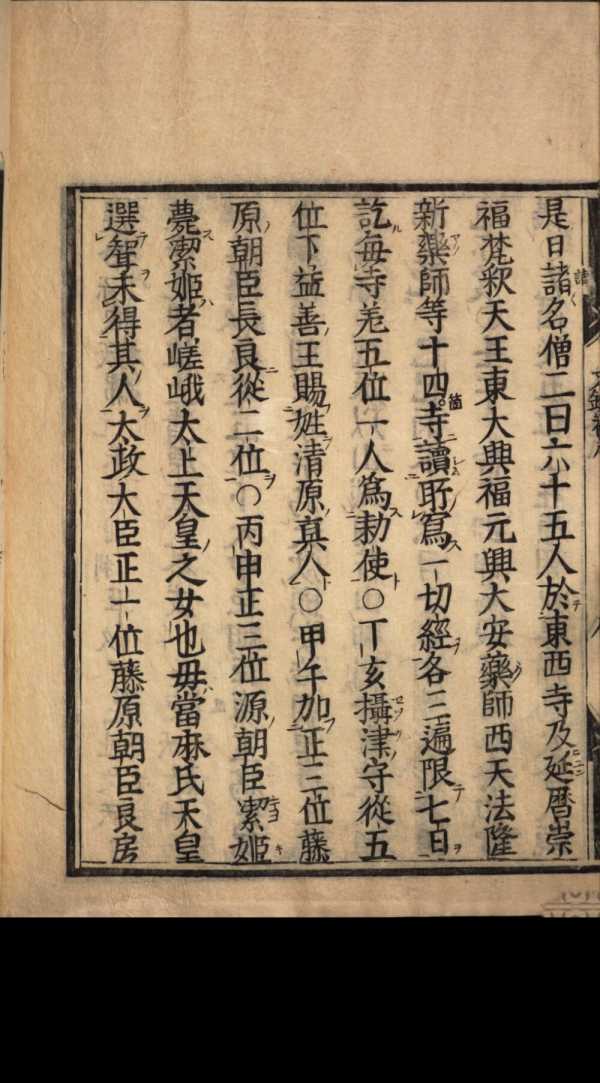 是日諸名僧二百六十五人於東西寺及延暦崇
福梵釈天王東大興福元興大安藥師西天法隆
新藥師等十四寺讀所寫一切經各三遍限七日
訖每寺差五位一人爲勅使○丁亥攝津守從五
位下益善王賜姓清原真人○甲午加正三位藤
原朝臣長良從二位○丙申正三位源朝臣潔姫
薨潔姫者嵯峨太上天皇之女也母當麻氏天皇
選聟未得其人太政大臣正一位藤原朝臣良房